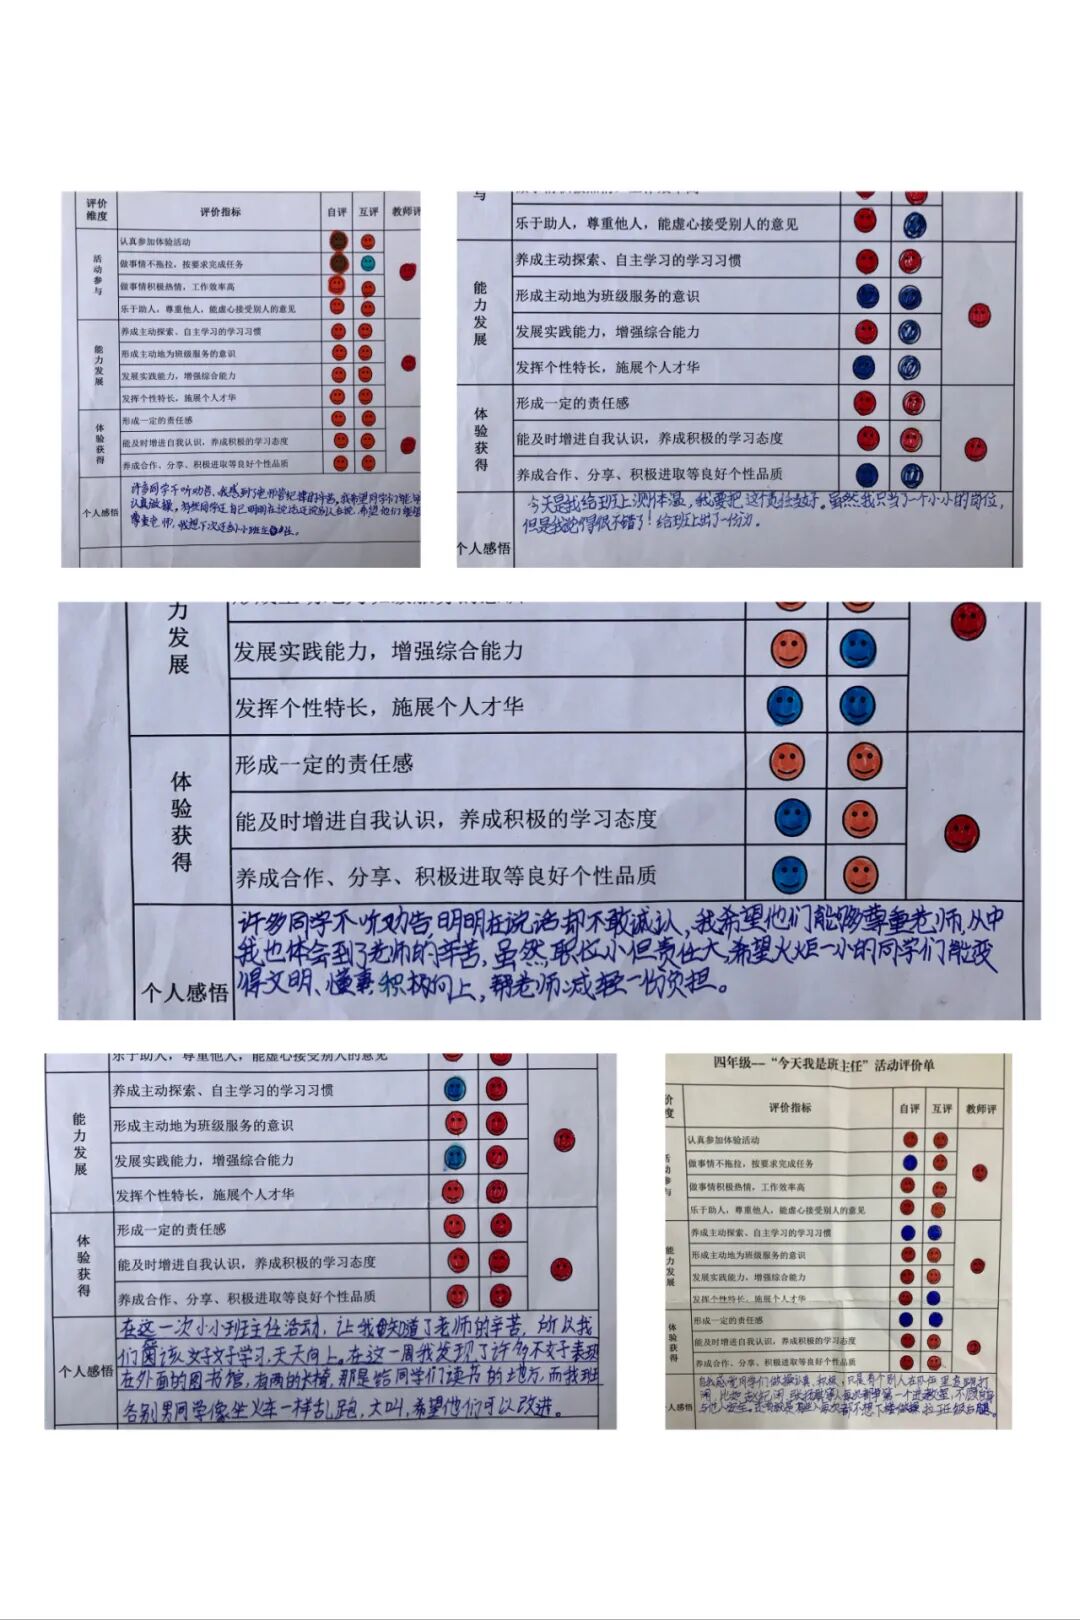 评价维度 评价指标 自评 互评 教师评
活动参与
认真参加体验活动
做事情不拖拉，按要求完成任务
做事情积极热情，工作效率高
乐于助人，尊重他人，能虚心接受别人的意见
能力发展
养成主动探索、自主学习的学习习惯
形成主动地为班级服务的意识
发展实践能力，增强综合能力
发挥个性特长，施展个人才华
体验获得
形成一定的责任感
能及时增进自我认识，养成积极的学习态度
养成合作、分享、积极进取等良好个性品质
个人感悟
许多同学不听劝告、我感到了老师管纪律的辛苦。我希望同学们能
认真做操，有些同学还自己明明在说话还说别人在说，希望他们
尊重老师，我想下次还当小小班主任。
与
乐于助人，尊重他人，能虚心接受别人的意见
能力发展
养成主动探索、自主学习的学习习惯
形成主动地为班级服务的意识
发展实践能力，增强综合能力
发挥个性特长，施展个人才华
体验获得
形成一定的责任感
能及时增进自我认识，养成积极的学习态度
养成合作、分享、积极进取等良好个性品质
今天是我给班上测体温，我要把这个责任当好。虽然我只当了一个小小的岗位，
但是我觉得很不错了！给班上出了一份力.
个人感悟
力发展
发展实践能力，增强综合能力
发挥个性特长，施展个人才华
体验获得
形成一定的责任感
能及时增进自我认识，养成积极的学习态度
养成合作、分享、积极进取等良好个性品质
许多同学不听劝告,明明在说话却不敢诚认，我希望他们能够尊重老师,从中
我也体会到了老师的辛苦,虽然,职位小但责任大,希望火炬一小的同学们能变
得文明、懂事,积极向上，帮老师减轻一份负担。
个人感悟
乐于助人，尊重他人，能虚心接受别人的意见
能力发展
养成主动探索、自主学习的学习习惯
形成主动地为班级服务的意识
发展实践能力，增强综合能力
发挥个性特长，施展个人才华
体验获得
形成一定的责任感
能及时增进自我认识，养成积极的学习态度
养成合作、分享、积极进取等良好个性品质
个人感悟
在这一次小小班主任活动，让我知道了老师的辛苦，所以我
们应该好好学习,天天向上。在这一周我发现了许多不好表现
在外面的图书馆,有两的长椅，那是给同学们读书的地方，而我班
各别男同学像坐火车一样乱跑，大叫，希望他们可以改进。
四年级--“今天我是班主任”活动评价单
价度 评价指标 自评 互评 教师评
活动参与
认真参加体验活动
做事情不拖拉，按要求完成任务
做事情积极热情，工作效率高
乐于助人，尊重他人，能虚心接受别人的意见
能力发展
养成主动探索、自主学习的学习习惯
形成主动地为班级服务的意识
发展实践能力，增强综合能力
发挥个性特长，施展个人才华
体验获得
形成一定的责任感
能及时增进自我认识，养成积极的学习态度
养成合作、分享、积极进取等良好个性品质
人感悟
同学们做操认真、积极，只是有个别人在队伍里
第一个进教室，不顾
都不想下楼做操拉班级后腿。